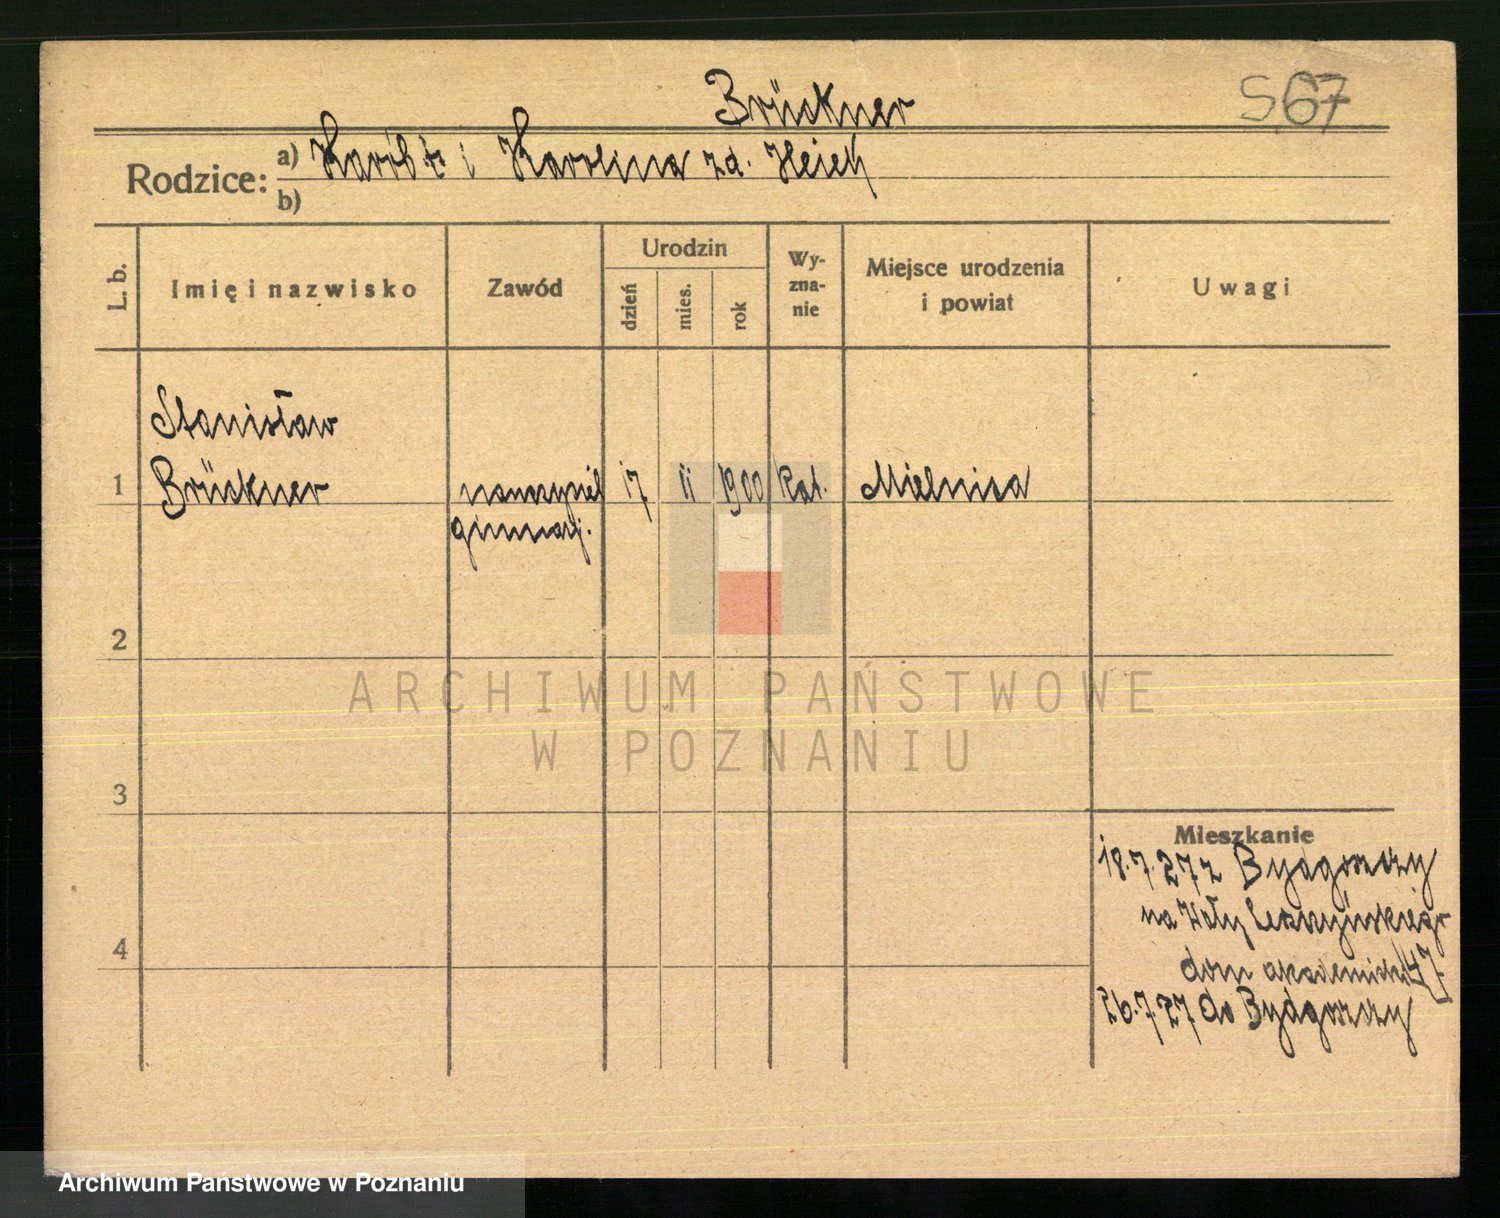 Brückner
S67
Rodzice:
a) Karol † i Karolina zd.
b)
L. b.
Imię i nazwisko
Zawód
Urodzin
dzień
mies.
rok
Wy-
zna-
nie
Miejsce urodzenia
i powiat
Uwagi
Stanisław
1 Brückner nauczyciel 17 11 1900 kat. Mielnica
gimnazj.
2
3
4
Mieszkanie
18.7.27 z Bydgoszczy
na Wały Leszczyńskiego
dom akademicki 47
26.7.27 do Bydgoszczy
ARCHIWUM PAŃSTWOWE
W POZNANIU
Archiwum Państwowe w Poznaniu